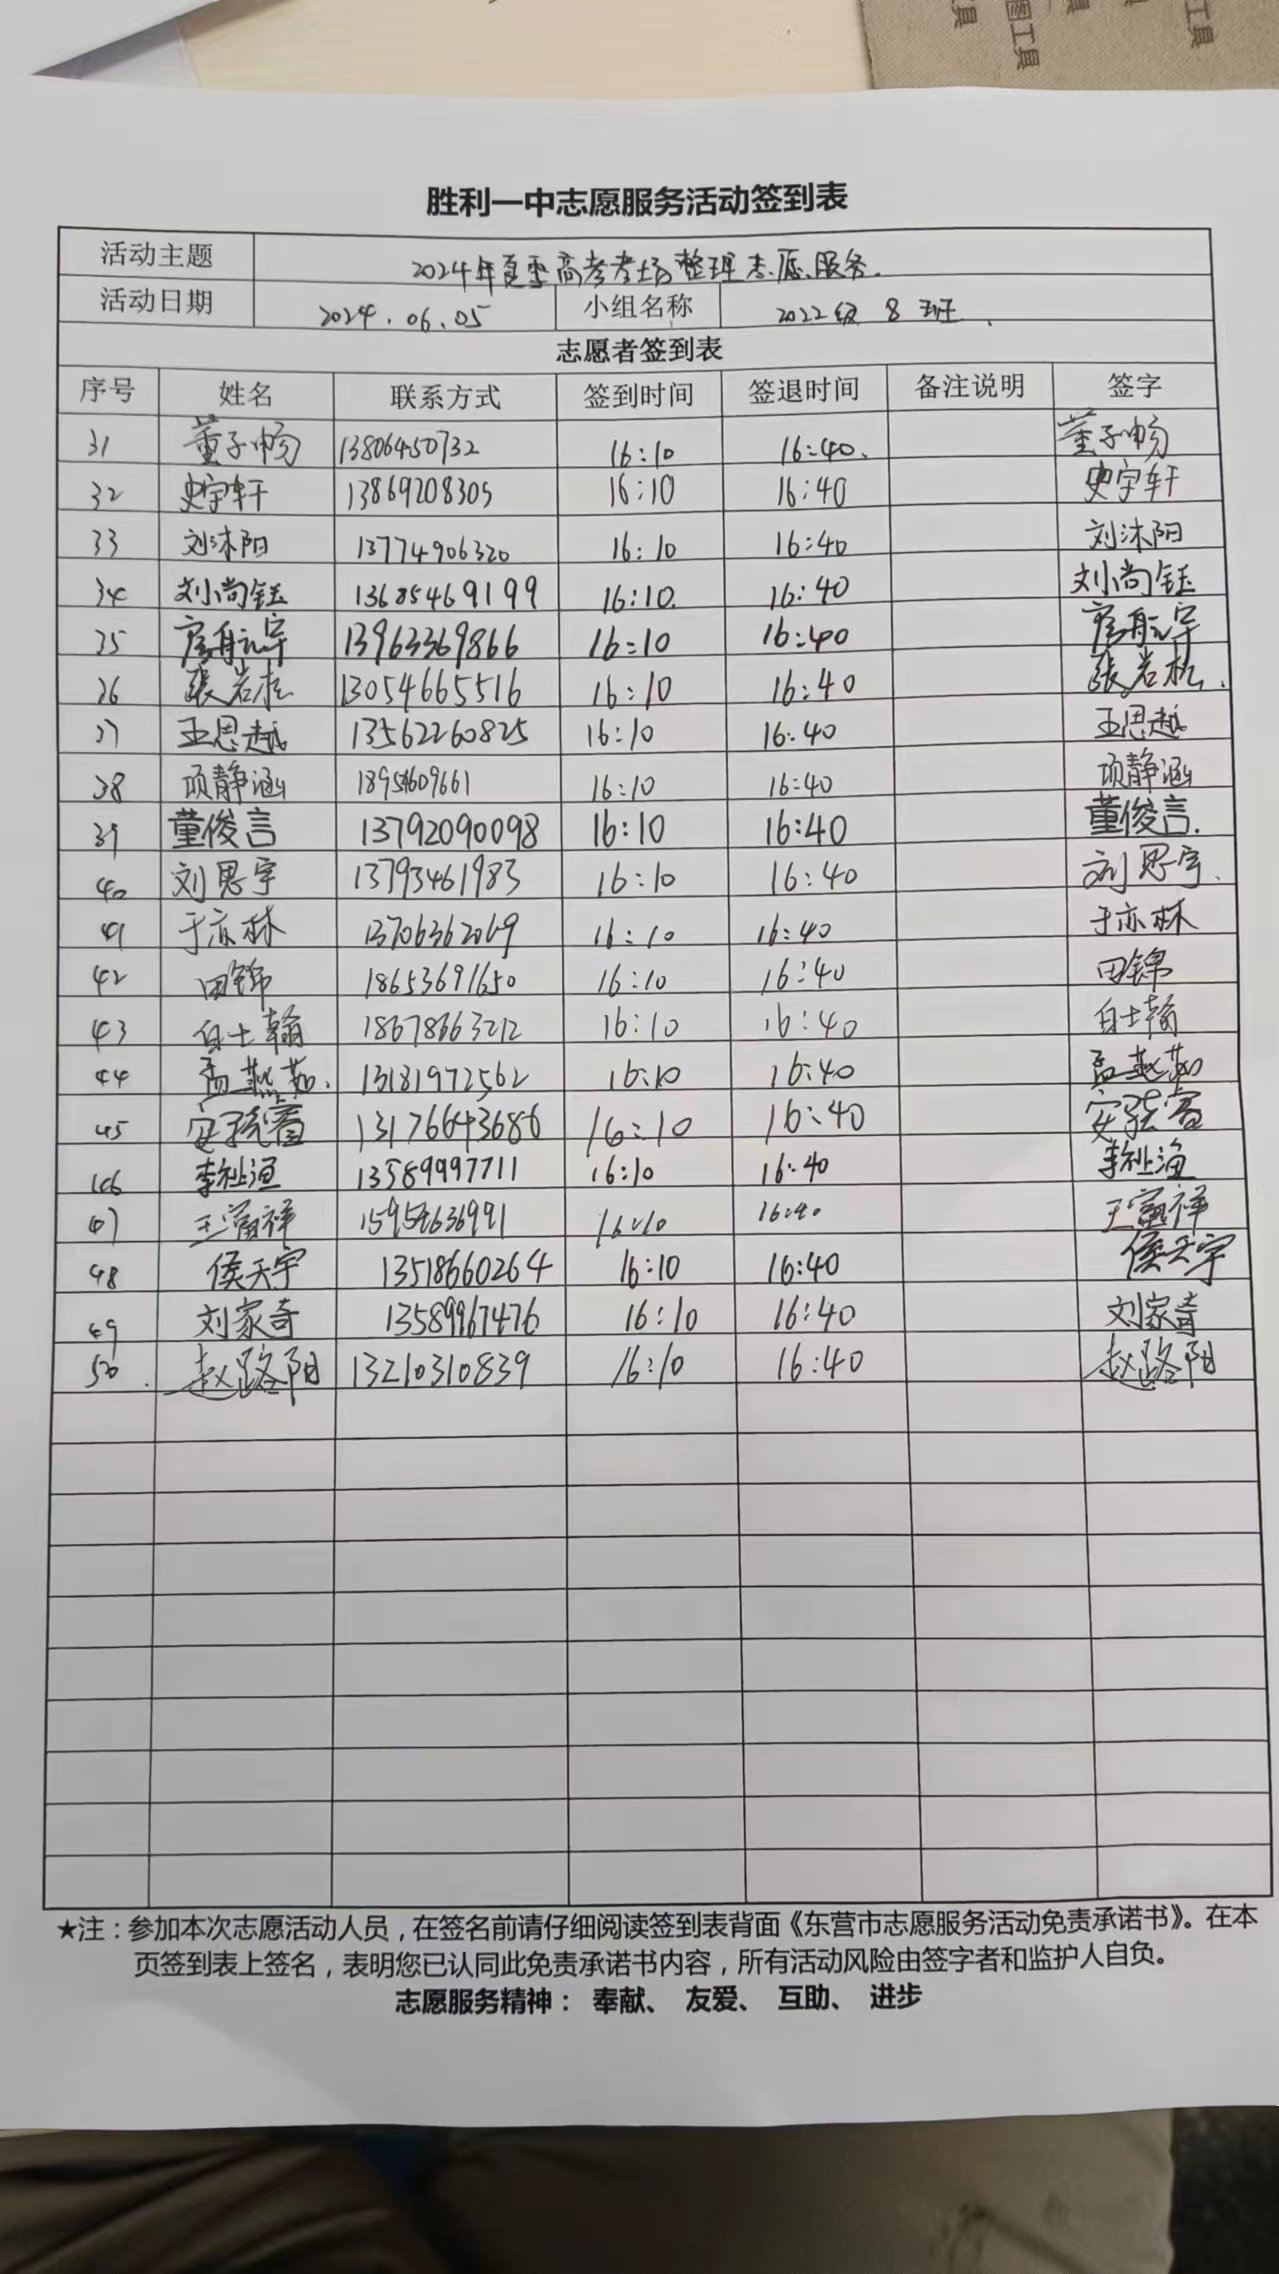 图工具
工具
具
具
胜利一中志愿服务活动签到表
活动主题 2024年夏季高考考场整理志愿服务.
活动日期 2024.06.05 小组名称 2022级 8班.
志愿者签到表
序号 姓名 联系方式 签到时间 签退时间 备注说明 签字
31 董子畅 13806450732 16:10 16:40. 董子畅
32 史宇轩 13869208305 16:10 16:40 史宇轩
33 刘沐阳 13774906320 16:10 16:40 刘沐阳
34 刘尚钰 13685469199 16:10. 16:40 刘尚钰
35 13963369866 16:10 16:40
36 張岩松 13054665516 16:10 16:40 張岩松.
37 王思越 13562260825 16:10 16:40 王思越
38 项静涵 16:10 16:40 项静涵
39 董俊言 13792090098 16:10 16:40 董俊言.
40 刘思宇 13793461983 16:10 16:40 刘思宇.
41 于亦林 13706362069 16:10 16:40 于亦林
42 田锦 18653691650 16:10 16:40 田锦
43 白士翰 18678663212 16:10 16:40 白士翰
44 孟燕茹. 13181972562 16:10 16:40 孟燕茹
45 13176643686 16:10 16:40
46 李祉渔 13589997711 16:10 16:40 李祉渔
47 王富祥 16:10 16:40 王富祥
48 侯天宇 13518660264 16:10 16:40 侯天宇
49 刘家奇 13589967476 16:10 16:40 刘家奇
50. 赵路阳 13210310839 16:10 16:40 赵路阳
★注：参加本次志愿活动人员，在签名前请仔细阅读签到表背面《东营市志愿服务活动免责承诺书》。在本
页签到表上签名，表明您已认同此免责承诺书内容，所有活动风险由签字者和监护人自负。
志愿服务精神： 奉献、 友爱、 互助、 进步